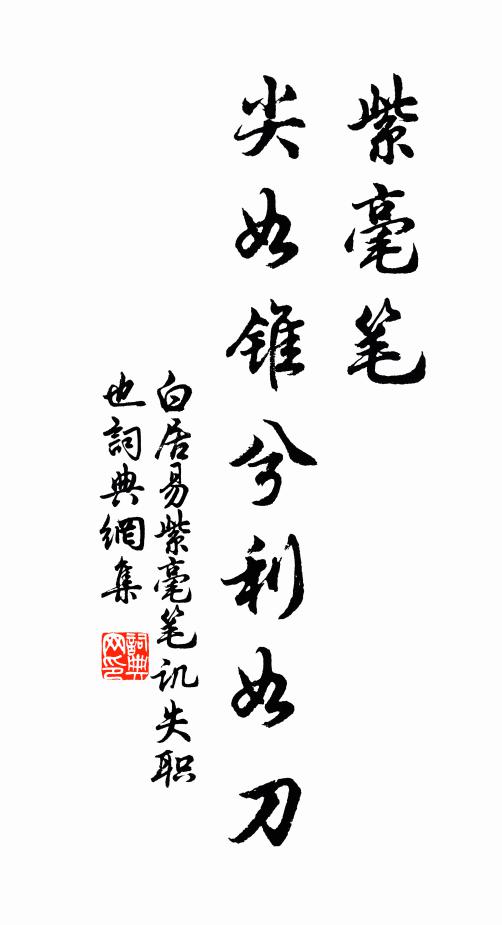 紫毫笔
尖如锥兮利如刀
白居易紫毫笔讥失职
也詞典網集
詞典网印